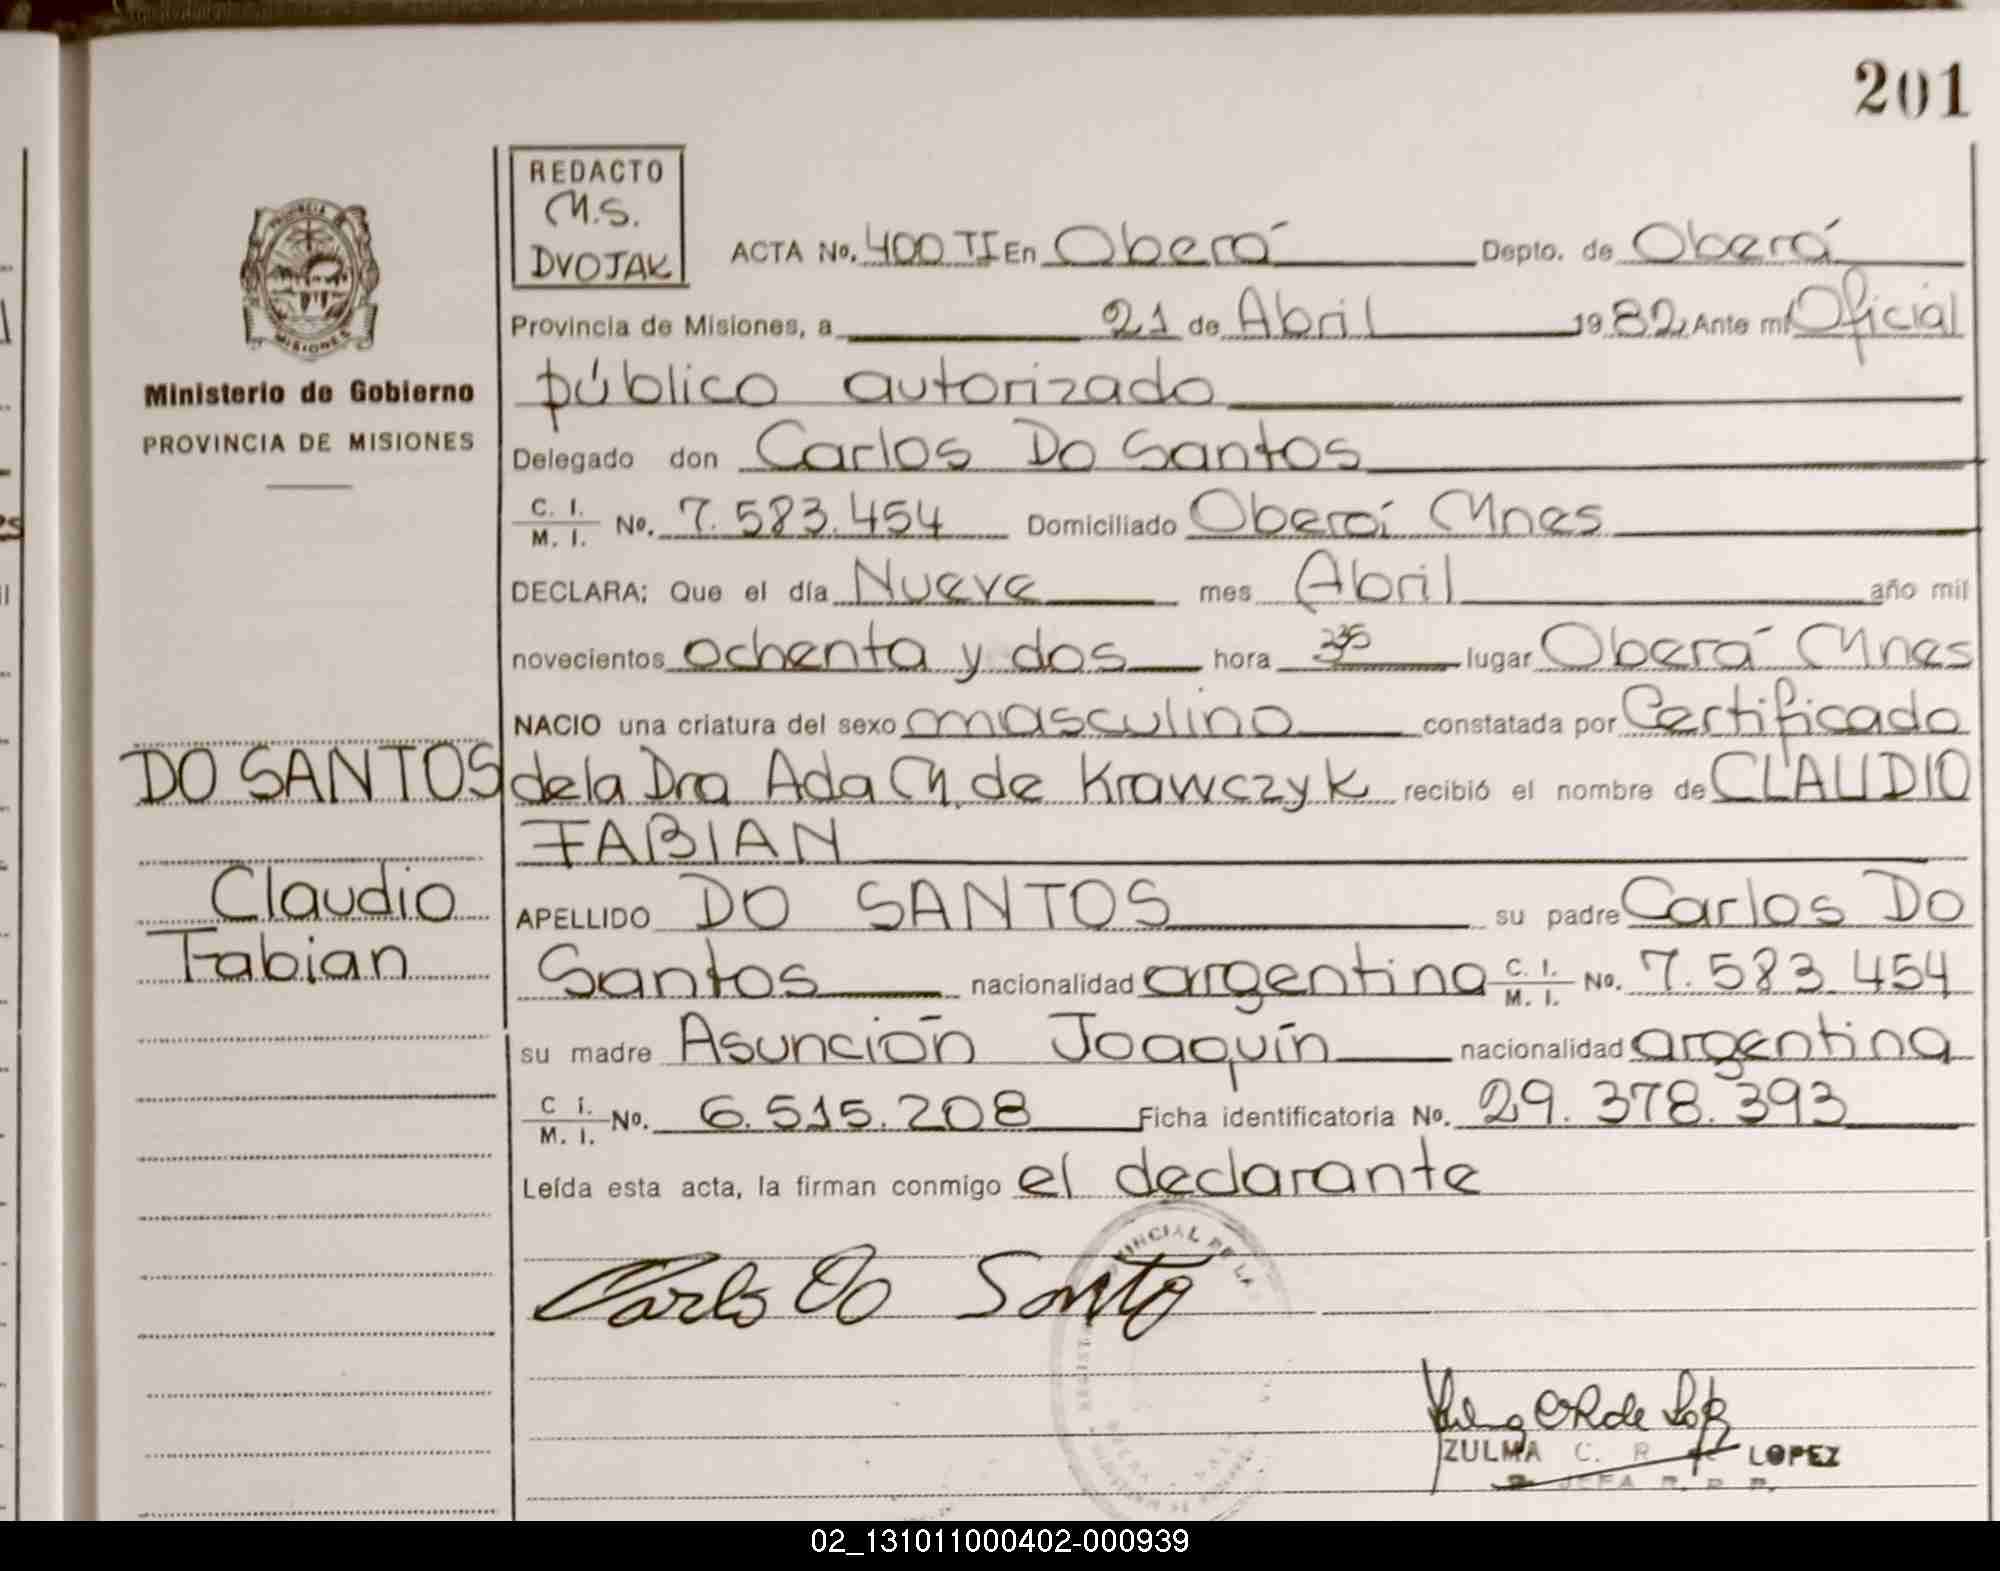 201
REDACTO
M.S.
DVOJAK
ACTA No. 400 TI En Oberá Depto. de Oberá
Provincia de Misiones, a 21 de Abril 1982 Ante mí Oficial
público autorizado
Delegado don Carlos Do Santos
C. I. / M. I. No. 7.583.454 Domiciliado Oberá Mnes
DECLARA: Que el día Nueve mes Abril año mil
novecientos ochenta y dos hora 3 35 lugar Oberá Mnes
NACIO una criatura del sexo masculino constatada por Certificado
de la Dra Ada M. de Krawczyk recibió el nombre de CLAUDIO
FABIAN
APELLIDO DO SANTOS su padre Carlos Do
Santos nacionalidad argentina C. I. / M. I. No. 7.583.454
su madre Asunción Joaquín nacionalidad argentina
C I. / M. I. No. 6.515.208 Ficha identificatoria No. 29.378.393
Leída esta acta, la firman conmigo el declarante
Carlos Do Santos
ZULMA C. R. LOPEZ
JEFA
PROVINCIA DE
MISIONES
Ministerio de Gobierno
PROVINCIA DE MISIONES
DO SANTOS
Claudio
Fabian
02_131011000402-000939